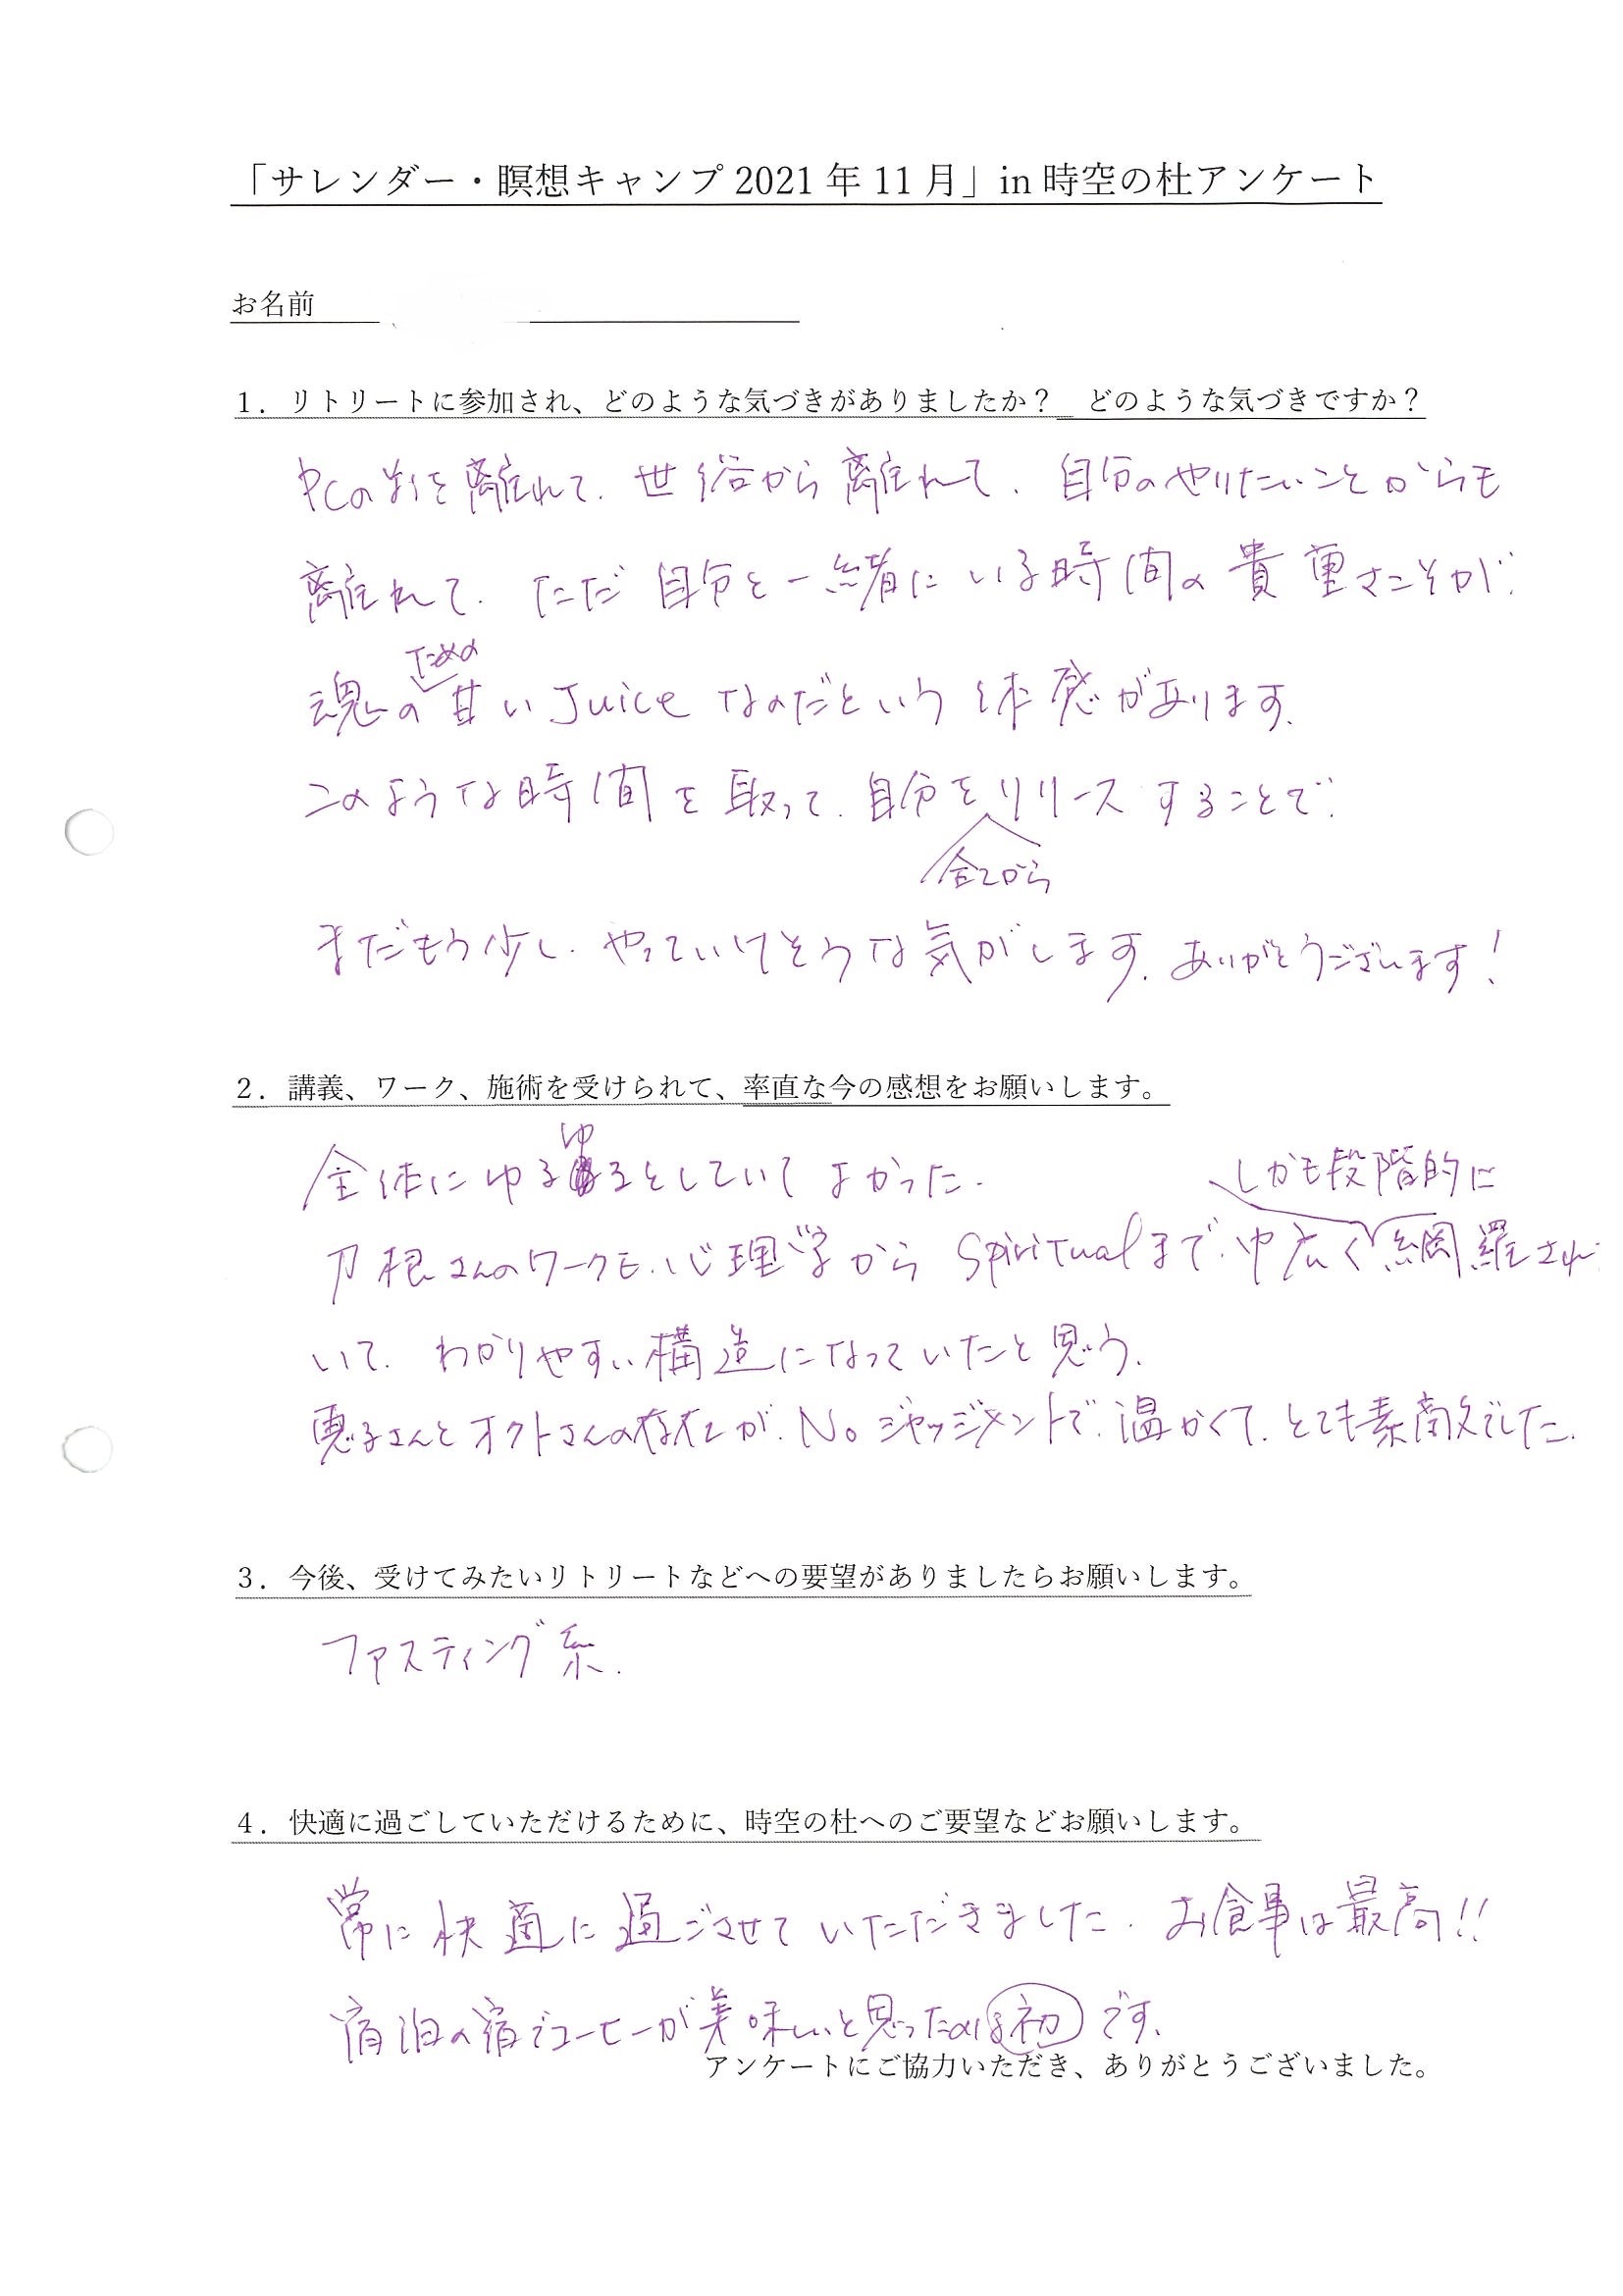 「サレンダー・瞑想キャンプ 2021 年 11 月」in 時空の杜アンケート
お名前
１．リトリートに参加され、どのような気づきがありましたか？　どのような気づきですか？
PCの前を離れて、世俗から離れて、自分のやりたいことからも
離れて、ただ自分と一緒にいる時間の貴重さこそが、
魂のための甘いJuiceなのだという体感があります。
このような時間を取って、自分を全てからリリースすることで、
まだもう少し、やっていけそうな気がします。ありがとうございます！
２．講義、ワーク、施術を受けられて、率直な今の感想をお願いします。
全体にゆるゆるとしていてよかった。
刀根さんのワークも、心理学からSpiritualまで、巾広くしかも段階的に網羅され
いて、わかりやすい構造になっていたと思う。
恵子さんとオクトさんの存在が、Noジャッジメントで、温かくて、とても素敵でした。
３．今後、受けてみたいリトリートなどへの要望がありましたらお願いします。
ファスティング系。
４．快適に過ごしていただけるために、時空の杜へのご要望などお願いします。
常に快適に過ごさせていただきました。お食事は最高!!
宿泊の宿でコーヒーが美味しいと思ったのは初です。
アンケートにご協力いただき、ありがとうございました。